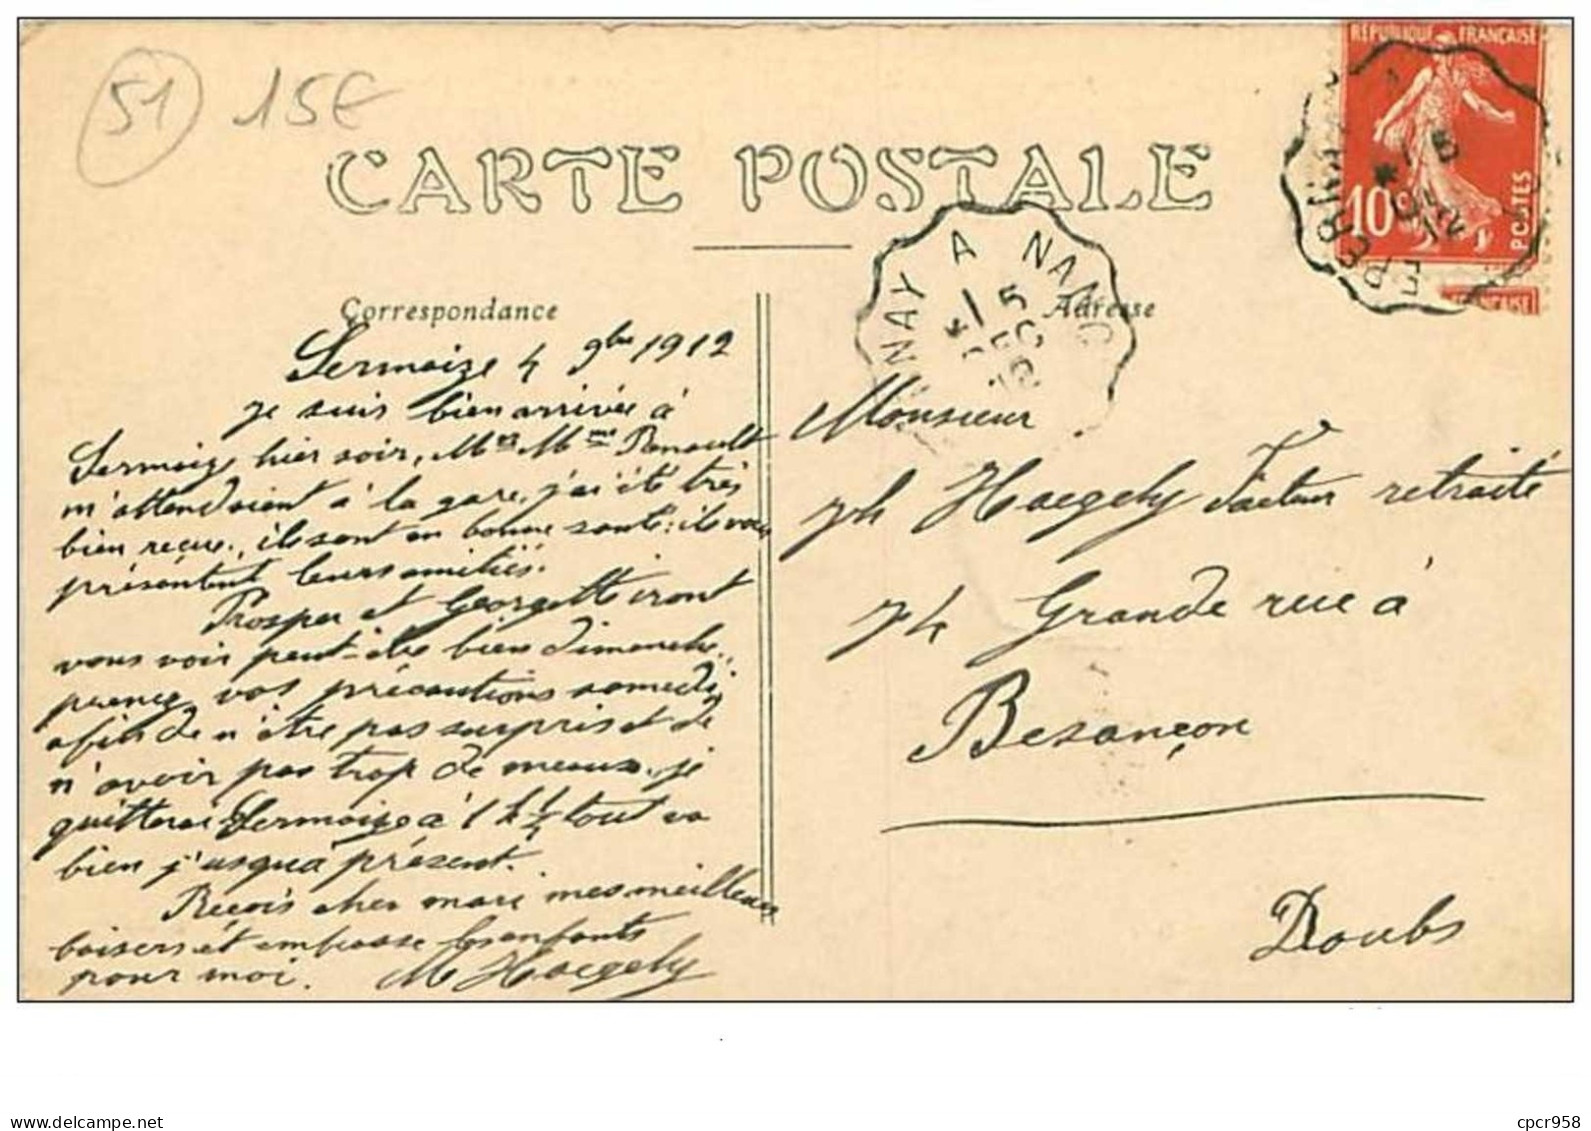 51 15€
CARTE POSTALE
RÉPUBLIQUE FRANÇAISE
10c
POSTES
NAY A NAN
Correspondance
Adresse
Sermaize 4 9bre 1912
je suis bien arrivée à
Sermaize hier soir, Mr Mme Renault
m'attendaient à la gare, j'ai été très
bien reçue, ils sont en bonne santé: ils vous
présentent leurs amitiés.
Prosper et Georgette iront
vous voir peut-être bien dimanche,
prenez vos précautions samedi,
afin de n'être pas surpris et de
n'avoir pas trop de meaux, je
quitterai Sermaize à 1 h ½ tout va
bien j'usqu'à présent.
Reçois cher mari mes meilleurs
baisers et embrasse les enfants
pour moi. M Haegely
Monsieur
Jh Haegely Facteur retraité
74 Grande rue à
Besançon
Doubs
www.delcampe.net
cpcr958